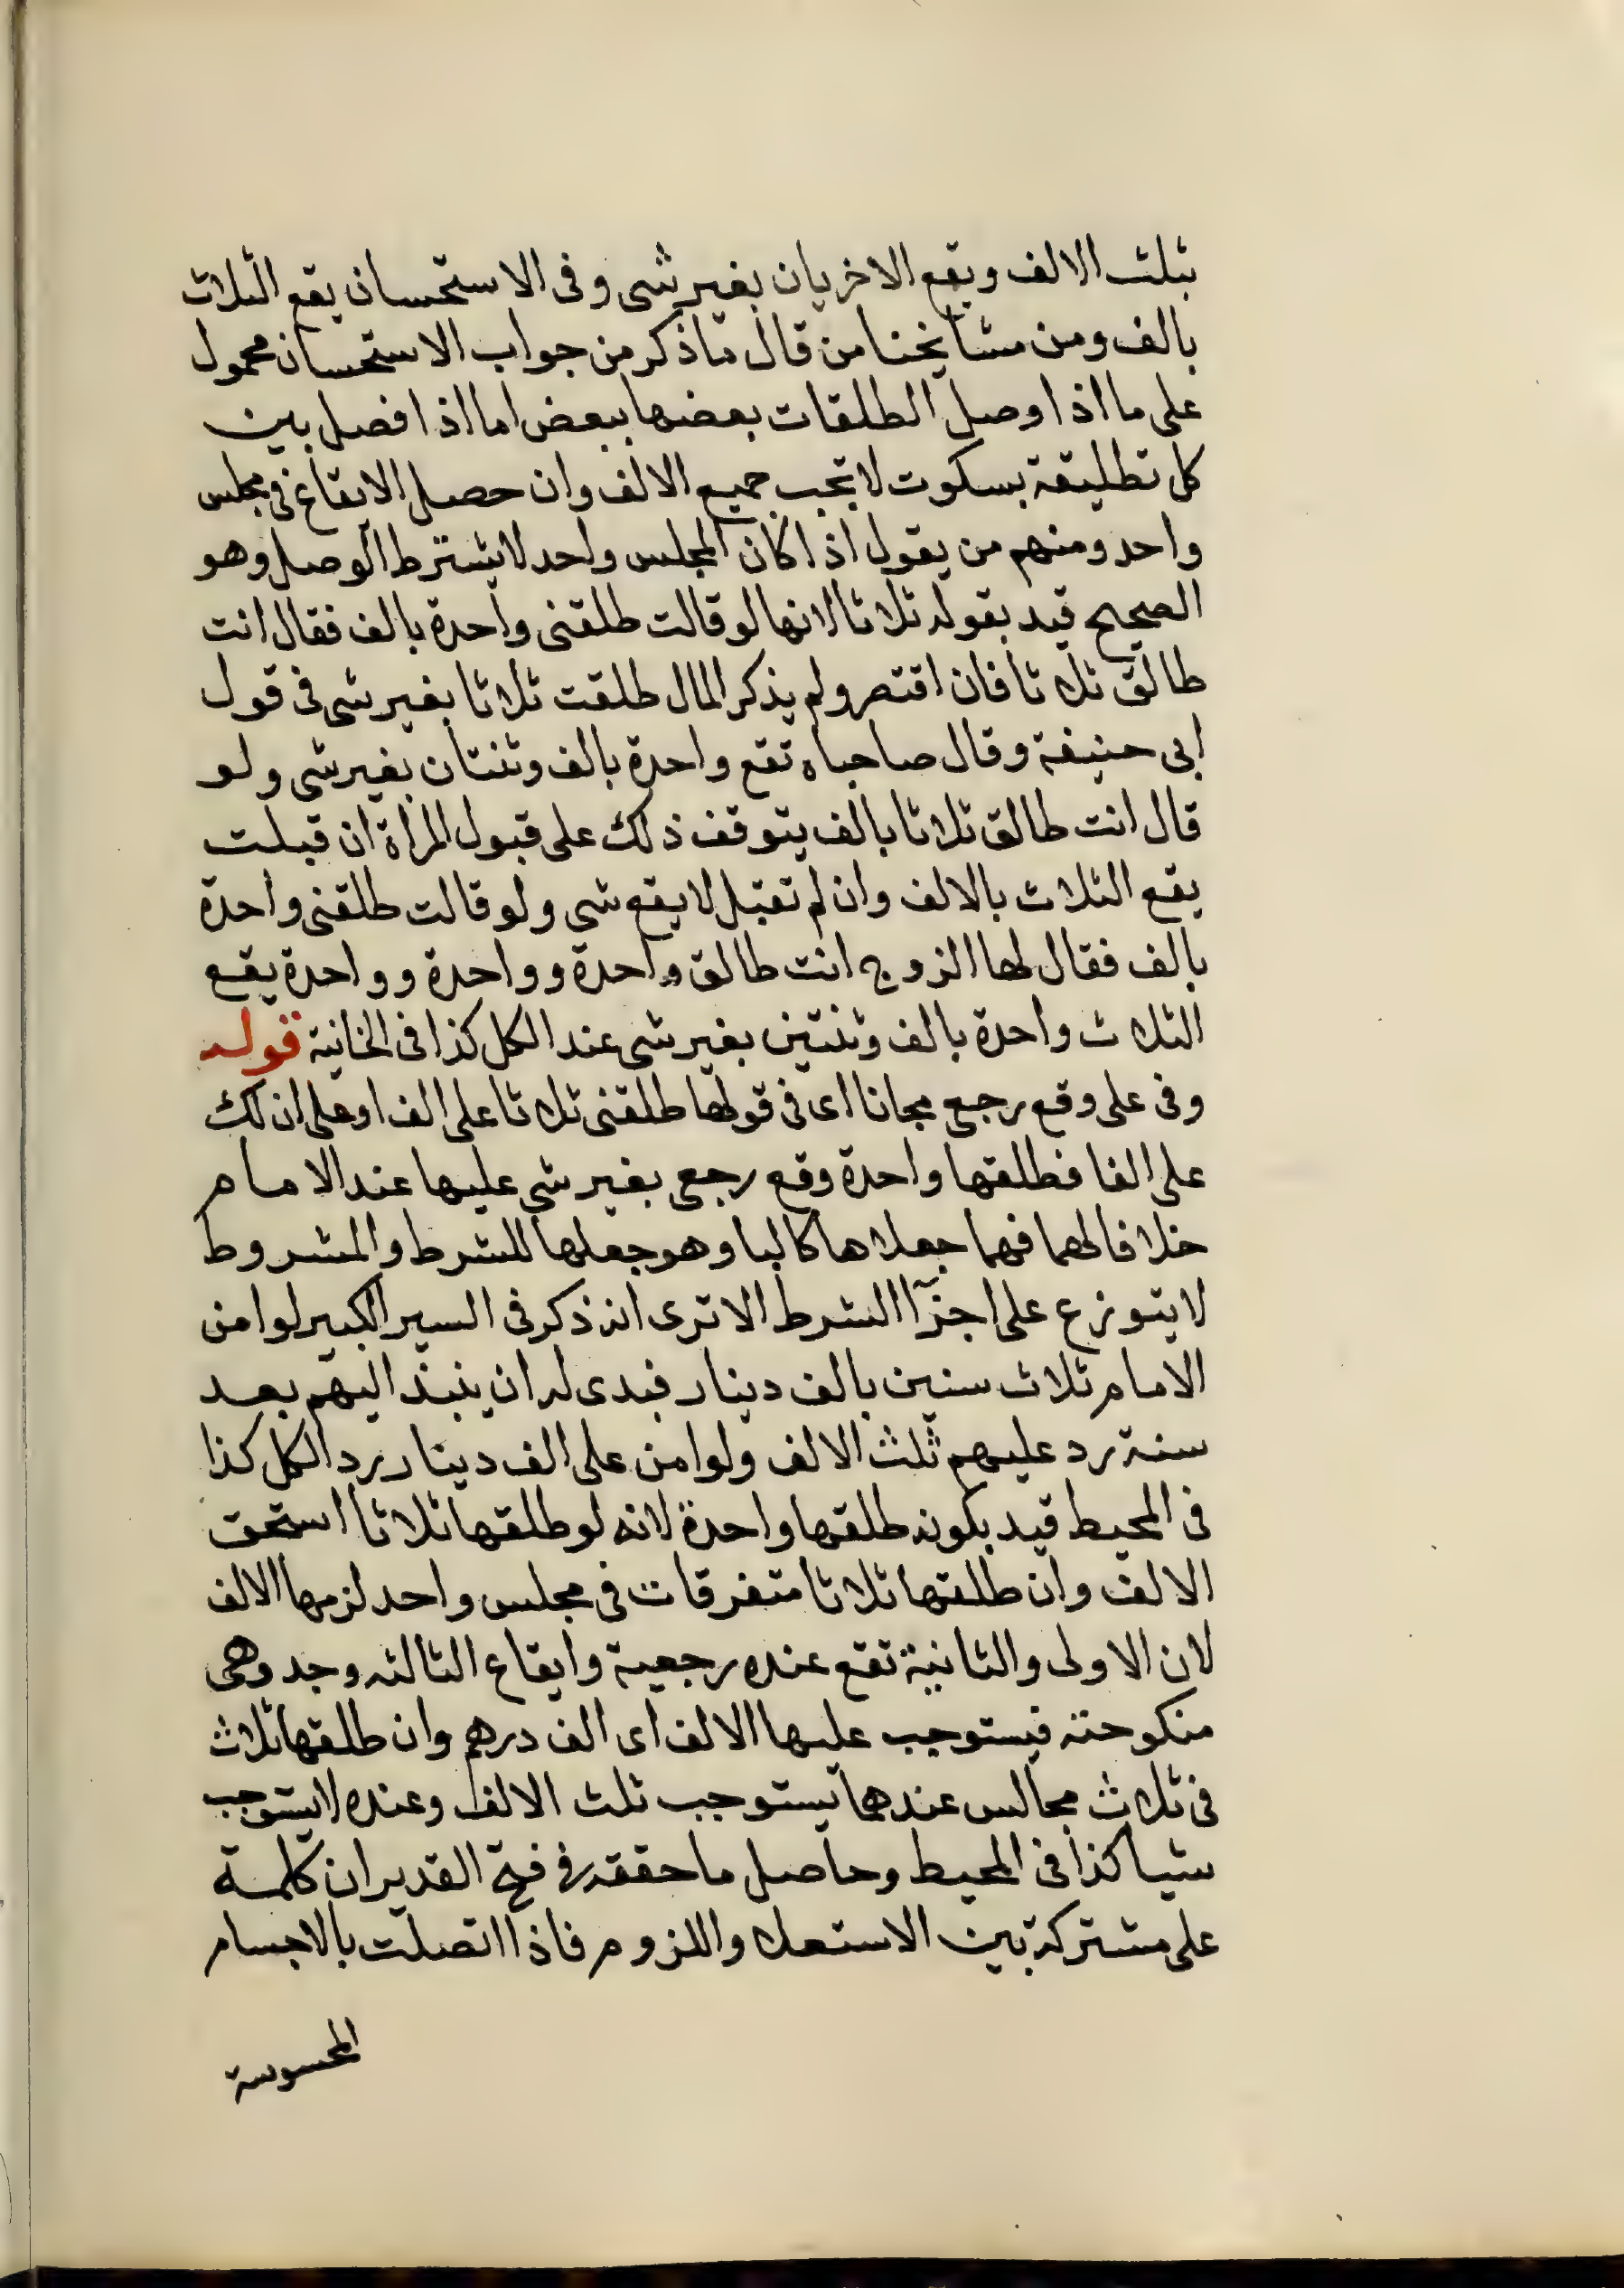 بثلث الالف ويقع الاخريان بغير شى وفى الاستحسان يقع الثلاث
بالف ومن مشايخنا من قال ما ذكر من جواب الاستحسان محمول
على ما اذا وصل الطلقات بعضها ببعض اما اذا فصل بين
كل تطليقة بسكوت لا تجب جميع الالف وان حصل الايقاع فى مجلس
واحد ومنهم من يقول اذا كان المجلس واحد لا يشترط الوصل وهو
الصحيح قيد بقوله ثلاثا لانها لو قالت طلقنى واحدة بالف فقال انت
طالق ثلاثا فان اقتصر ولم يذكر المال طلقت ثلاثا بغير شى فى قول
ابى حنيفة وقال صاحباه تقع واحدة بالف وثنتان بغير شى ولو
قال انت طالق ثلاثا بالف يتوقف ذلك على قبول المراة ان قبلت
يقع الثلاث بالالف وان لم تقبل لا يقع شى ولو قالت طلقنى واحدة
بالف فقال لها الزوج انت طالق واحدة وواحدة وواحدة يقع
الثلاث واحدة بالف وثنتين بغير شى عند الكل كذا فى الخانية قوله
وفى على وقع رجعى مجانا اى فى قولها طلقنى ثلاثا على الف او على ان لك
على الفا فطلقها واحدة وقع رجعى بغير شى عليها عند الامام
خلافا لهما فهما جعلاها كالبا وهو جعلها للشرط والمشروط
لا يتوزع على اجزآ الشرط الا ترى انه ذكر فى السير الكبير لو امن
الامام ثلاث سنين بالف دينار فبدى له ان ينبذ اليهم بعد
سنة رد عليهم ثلث الالف ولو امن على الف دينار رد الكل كذا
فى المحيط قيد بكونه طلقها واحدة لانه لو طلقها ثلاثا استحق
الالف وان طلقها ثلاثا متفرقات فى مجلس واحد لزمها الالف
لان الاولى والثانية تقع عنده رجعية وايقاع الثالثه وجد وهى
منكوحته فيستوجب عليها الالف اى الف درهم وان طلقها ثلاث
فى ثلاث مجالس عندهما يستوجب ثلث الالف وعنده لا يستوجب
شيا كذا فى المحيط وحاصل ما حققه فى فتح القدير ان كلمة
على مشتركة بين الاستعلا واللزوم فاذا اتصلت بالاجسام
المحسوسة